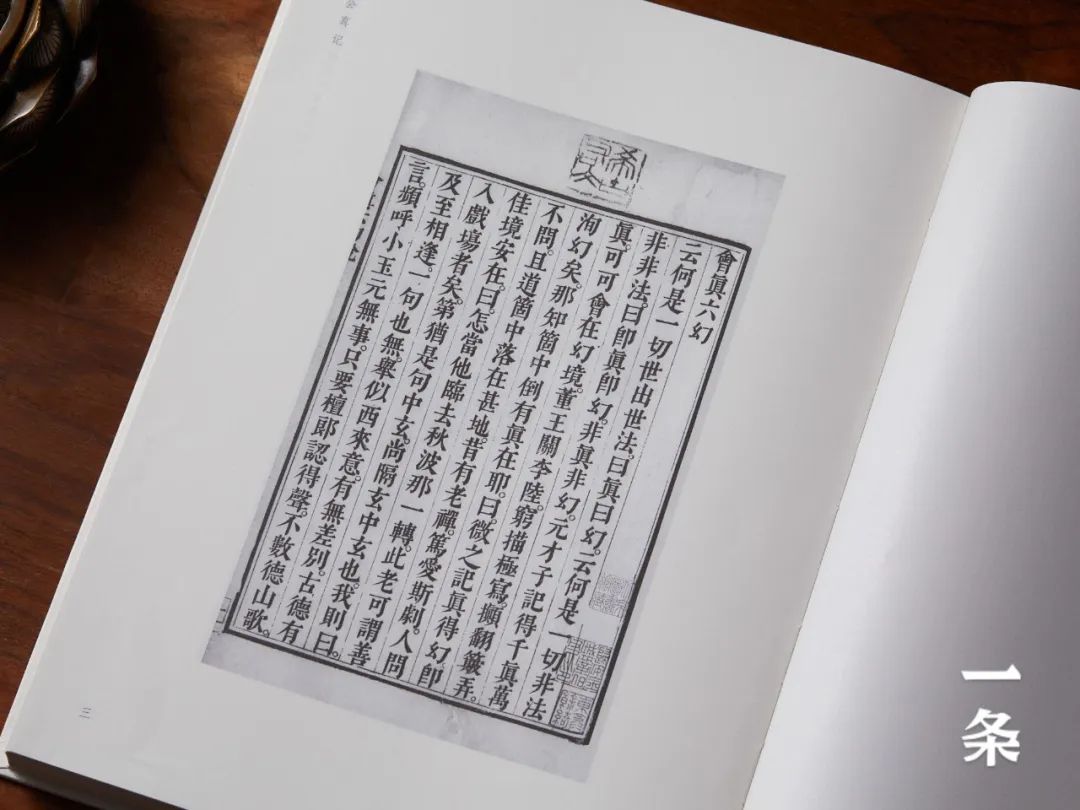 会真记
會眞六幻
云何是一切世出世法。曰眞曰幻。云何是一切非法
非非法。曰卽眞卽幻。非眞非幻。元才子記得千眞萬
眞。可可會在幻境。董王關李陸。窮描極寫。攧翻簸弄。
洵幻矣。那知箇中倒有眞在耶。曰。微之記眞得幻。卽
不問。且道箇中落在甚地。昔有老禪。篤愛斯劇。人問
佳境安在。曰。怎當他臨去秋波那一轉。此老可謂善
入戲場者矣。第猶是句中玄。尚隔玄中玄也。我則曰。
及至相逢。一句也無。舉似西來意。有無差別。古德有
言。頻呼小玉元無事。只要檀郞認得聲。不數德山歌。
三
一条